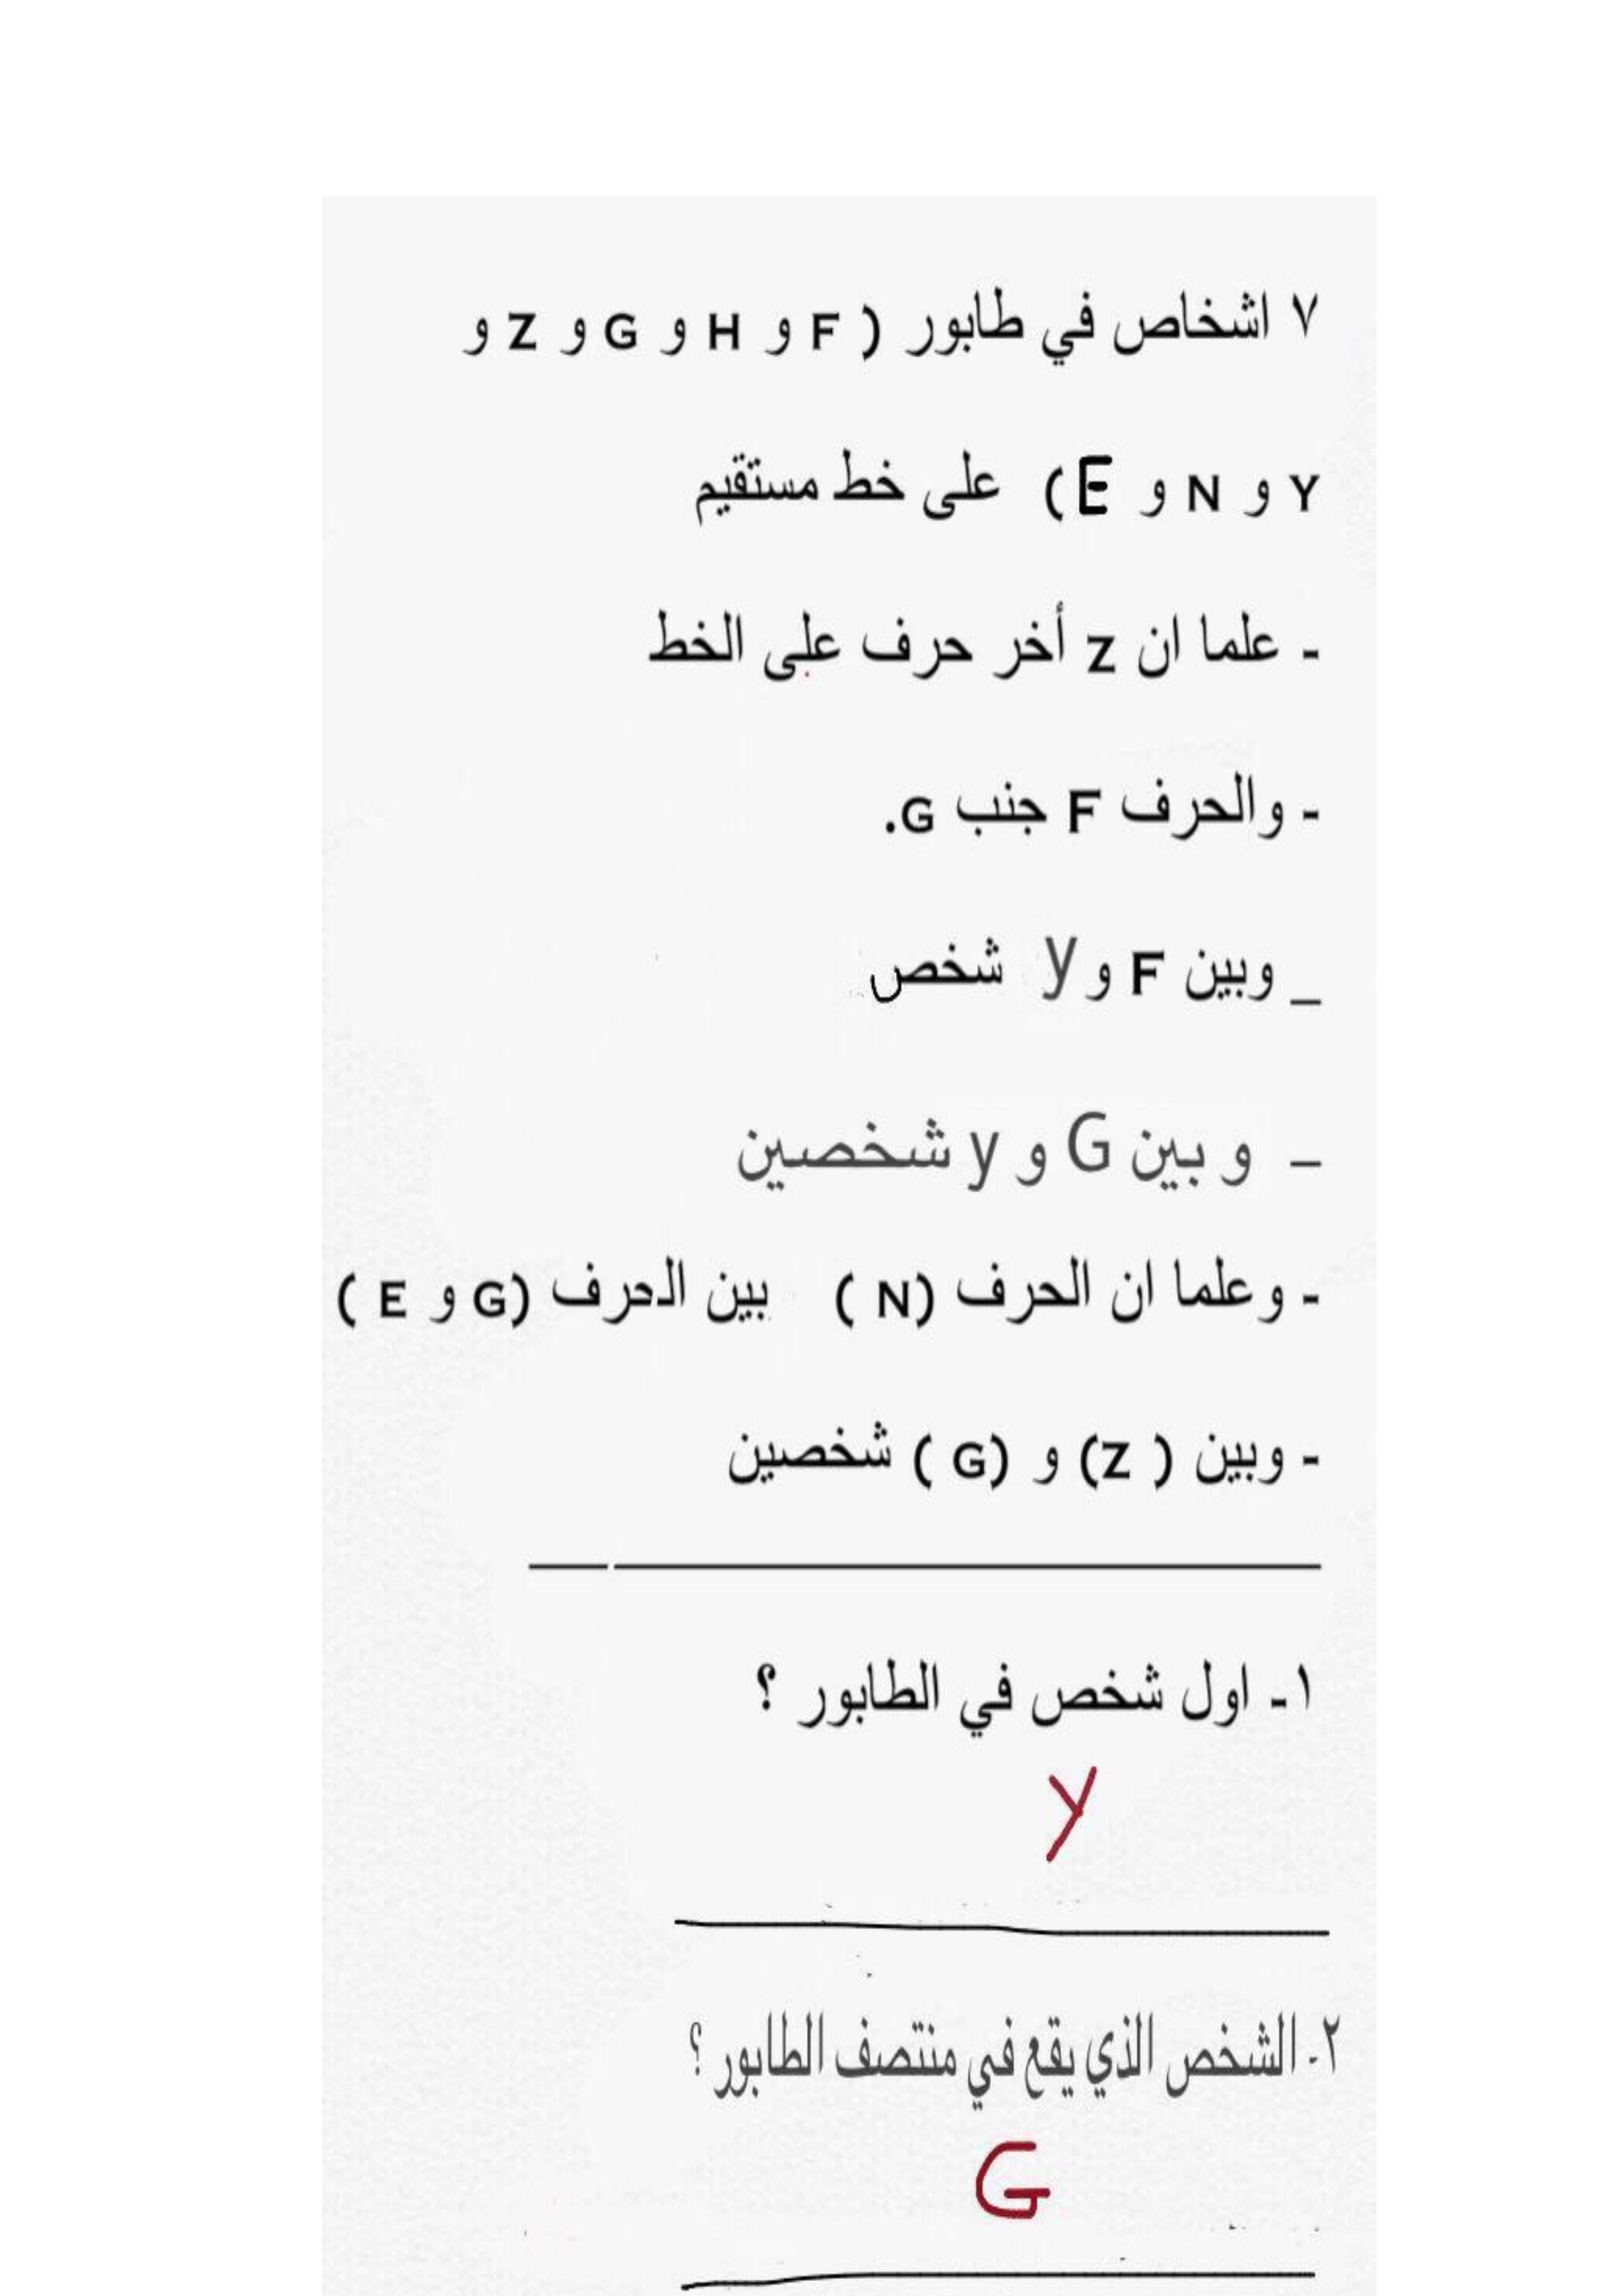 ٧ اشخاص في طابور ( F و H و G و Z و
Y و N و E ) على خط مستقيم
- علما ان z أخر حرف على الخط
- والحرف F جنب G.
_ وبين F و y شخص
- و بين G و y شخصين
- وعلما ان الحرف (N ) بين الحرف (G و E )
- وبين ( Z) و (G ) شخصين
١- اول شخص في الطابور ؟
y
٢- الشخص الذي يقع في منتصف الطابور ؟
G